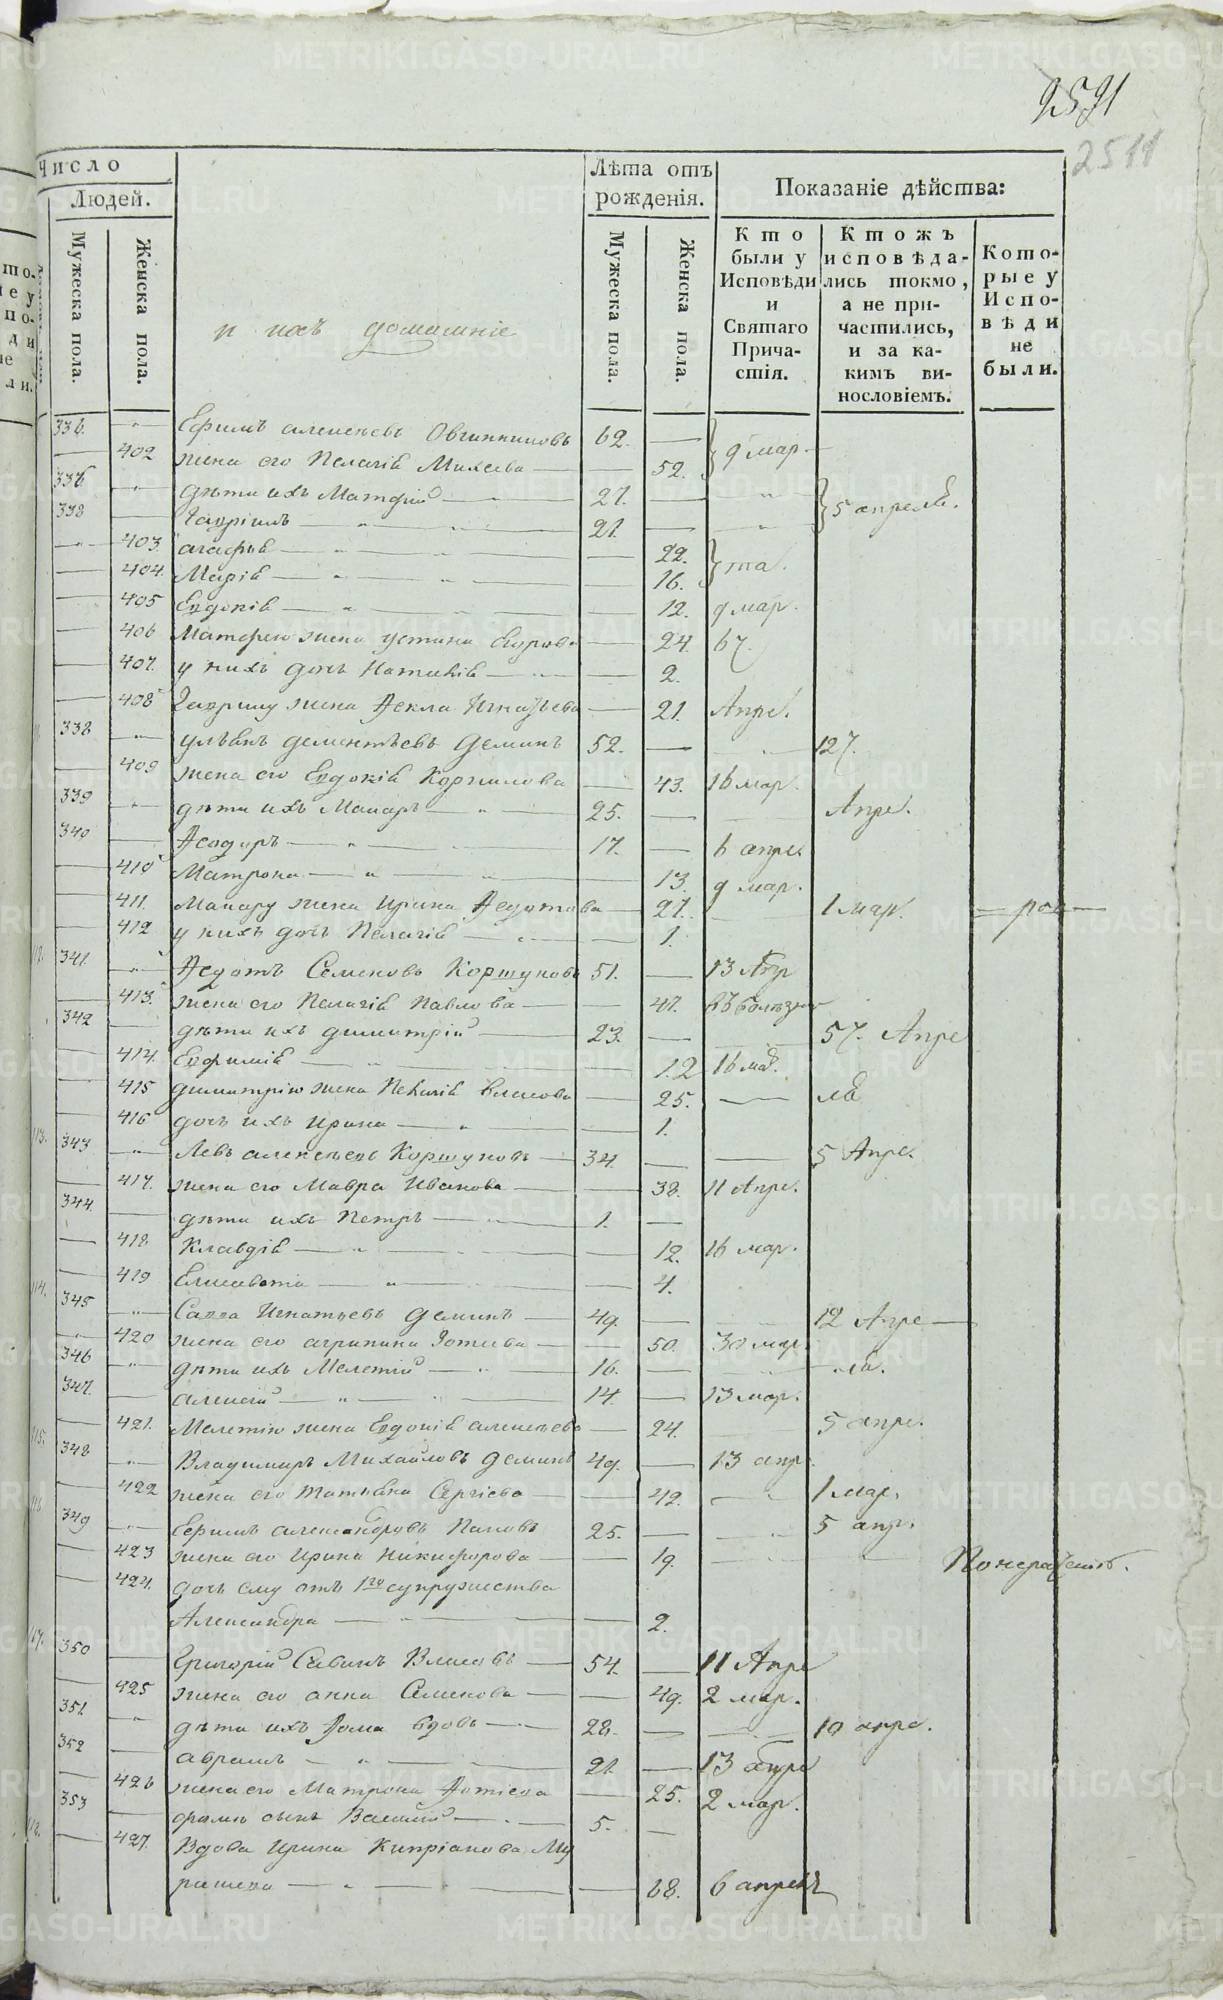 2591
2511
Число
Людей.
Мужеска пола.
Женска пола.
и ихъ домашніе
Лѣта отъ рожденія.
Мужеска пола.
Женска пола.
Показаніе дѣйства:
Кто были у Исповѣди и Святаго Причастія.
Ктожъ исповѣдались токмо, а не причастились, и за какимъ винословіемъ.
Которые у Исповѣди не были.
336. Ефимъ Алексѣевъ Овчинниковъ 62. 9 мар
402 жена его Пелагія Михеева 52.
дѣти ихъ Матфій 27. 5 апреля.
338 Гавріилъ 21.
403. Агафья 22. та.
404. Марія 16.
405 Евдокія 12. 9 мар.
406 Матфею жена Устина Егорова 24. 67.
407. у нихъ дочь Наталія 2.
408 Гаврилу жена Ѳекла Игнатьева 21. Апре.
338 Ульянъ Дементьевъ Деминъ 52. 127.
409 жена его Евдокія Корнилова 43. 16 мар.
339 дѣти ихъ Макаръ 25. Апре.
340 Ѳеодоръ 17. 6 апре.
410 Матрона 13. 9 мар.
411. Макару жена Ирина Ѳедотова 27. 1 мар.
412 у нихъ дочь Пелагія 1.
341. Ѳедотъ Семеновъ Коршуновъ 51. 13 Апр
413. жена его Пелагія Павлова 47. въ болѣзни
342 дѣти ихъ Димитрій 23. 57. Апре
414. Евфимія 12 16 мар.
415 Димитрію жена Пелагія Власова 25. ля
416 дочь ихъ Ирина 1.
343 Левъ Алексѣевъ Коршуновъ 34. 5 Апре.
417. жена его Мавра Иванова 38. 11 Апре.
344. дѣти ихъ Петръ 1.
418 Клавдія 12. 16 мар.
419 Елисавета 4.
345 Савва Игнатьевъ Деминъ 49. 12 Апре
420 жена его Агрипина Зотеева 50. 30 мар.
346 дѣти ихъ Мелетій 16. ля.
347. Алексій 14. 13 мар.
421. Мелетію жена Евдокія Алексѣева 24. 5 апре.
348 Владимиръ Михайловъ Деминъ 49. 13 апр
422 жена его Татьяна Сергіева 42. 1 мар.
349 Ефимъ Александровъ Пановъ 25. 5 апр.
423 жена его Ирина Никифорова 19.
424. дочь ему отъ 1го супружества
Александра 2.
350 Григорій Савинъ Власовъ 54. 11 Апре
425 жена его Анна Семенова 49. 2 мар.
351. дѣти ихъ Ѳома вдовъ 28. 10 апре.
352 Авраамъ 21. 13 апре
426 жена его Матрона Фотіева 25. 2 мар.
353 Ѳомы сынъ Василій 5.
427. Вдова Ирина Кипріанова Му
рашева 68. 6 апреля